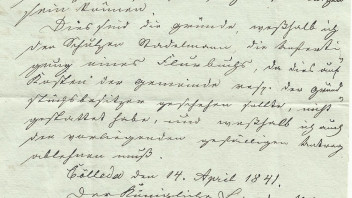 sein können
Dies sind die gründe, weßhalb ich
der Schulzen Stadelmann die Anferti-
gung eines Flurbuchs, da dies auf
Kosten der gemeinde resp. der Grund-
stücksbesitzer geschehen sollte, nicht
gestattet habe, und weßhalb ich auch
den vorliegenden gefälligen Antrag
ablehnen muß.
Cölleda den 14. April 1841.
Der Königliche